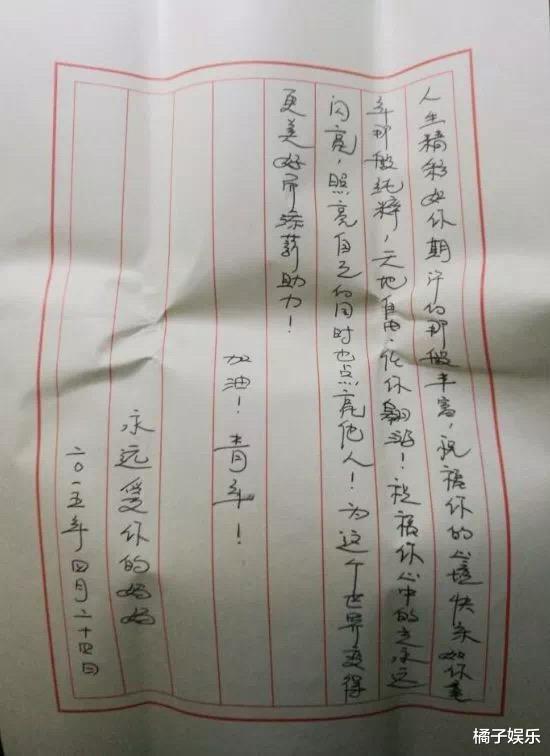 人生精彩如你期许的那般丰富，祝福你的心境快乐如你童
年那般纯粹，天地自由，任你翱翔！祝福你心中的光永远
闪亮，照亮自己的同时也点亮他人！为这个世界变得
更美好而添薪助力！
加油！青年！
永远爱你的妈妈
二〇一五年四月二十四日
橘子娱乐